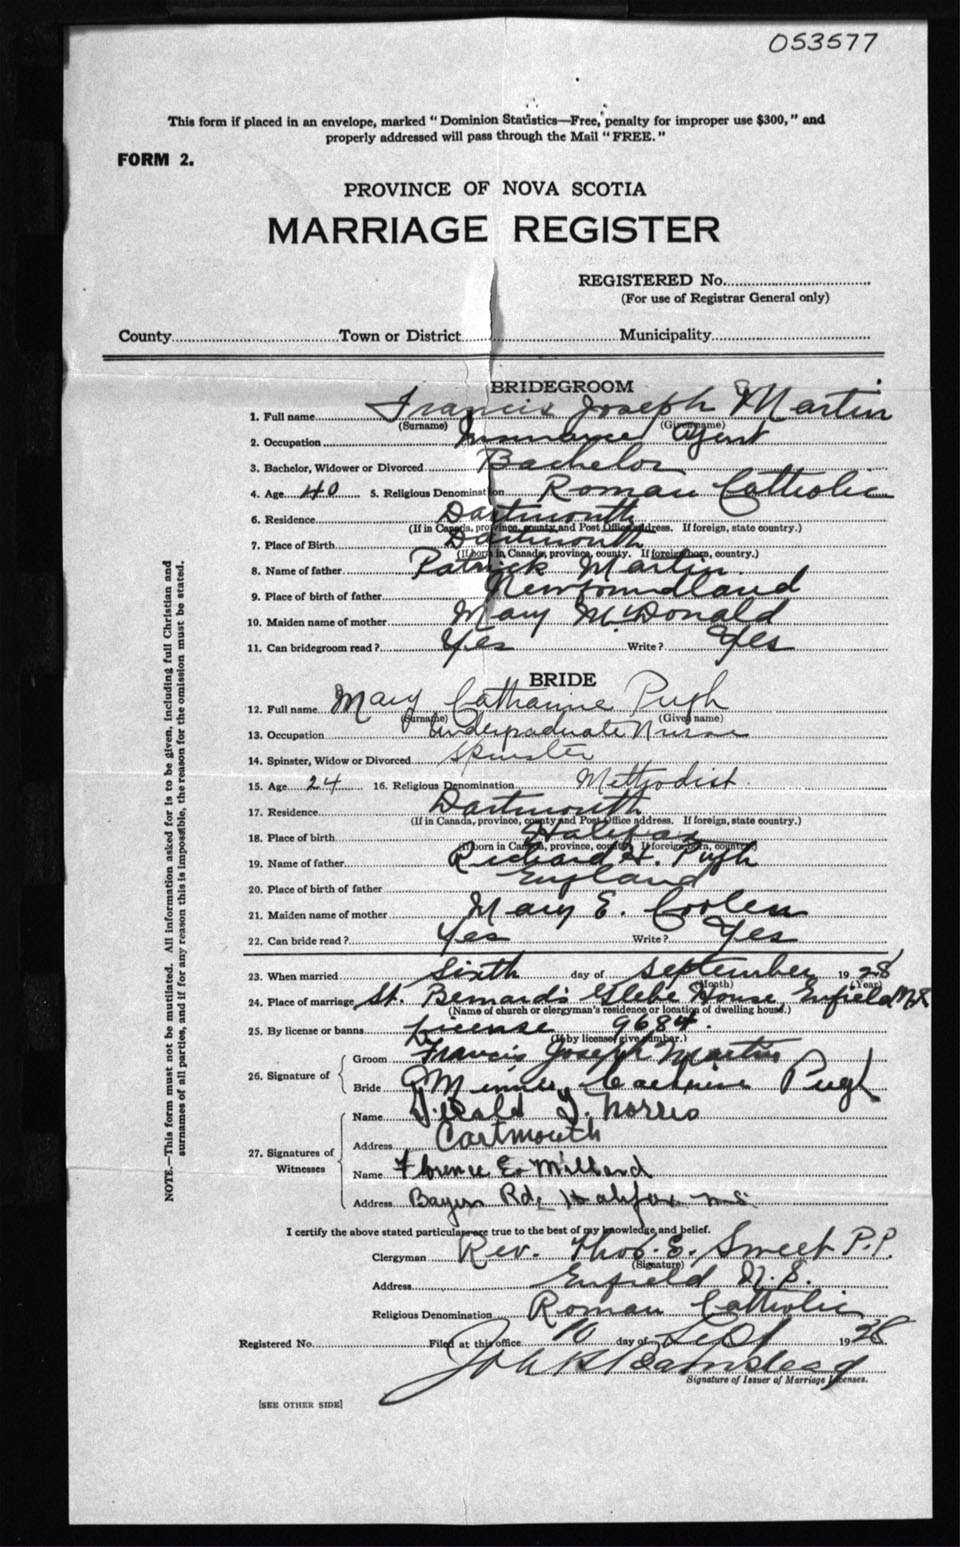 053577
This form if placed in an envelope, marked "Dominion Statistics—Free, penalty for improper use $300," and
properly addressed will pass through the Mail "FREE."
FORM 2.
PROVINCE OF NOVA SCOTIA
MARRIAGE REGISTER
REGISTERED No.
(For use of Registrar General only)
County Town or District Municipality
BRIDEGROOM
1. Full name Francis Joseph Martin
(Surname) (Given name)
2. Occupation Insurance Agent
3. Bachelor, Widower or Divorced Bachelor
4. Age 40 5. Religious Denomination Roman Catholic
6. Residence Dartmouth
(If in Canada, province, county and Post Office address. If foreign, state country.)
7. Place of Birth Dartmouth
(If born in Canada, province, county. If foreign born, country.)
8. Name of father Patrick Martin
9. Place of birth of father Newfoundland
10. Maiden name of mother Mary McDonald
11. Can bridegroom read? Yes Write? Yes
BRIDE
12. Full name Mary Catharine Pugh
(Surname) (Given name)
13. Occupation Undergraduate Nurse
14. Spinster, Widow or Divorced Spinster
15. Age 24 16. Religious Denomination Methodist
17. Residence Dartmouth
(If in Canada, province, county and Post Office address. If foreign, state country.)
18. Place of birth Halifax
(If born in Canada, province, county. If foreign born, country)
19. Name of father Richard H. Pugh
20. Place of birth of father England
21. Maiden name of mother Mary E. Coolen
22. Can bride read? Yes Write? Yes
23. When married Sixth day of September 1928
(Month) (Year)
24. Place of marriage St. Bernard's Glebe House, Enfield N.S.
(Name of church or clergyman's residence or location of dwelling house.)
25. By license or banns License 9684.
(If by license, give number.)
26. Signature of
Groom Francis Joseph Martin
Bride Catherine Pugh
27. Signatures of Witnesses
Name Norris
Address Dartmouth
Name Florence E. Millard
Address Bayers Rd. Halifax N.S.
I certify the above stated particulars are true to the best of my knowledge and belief.
Clergyman Rev. Thos. E. Sweet P.P.
(Signature)
Address Enfield N.S.
Religious Denomination Roman Catholic
Registered No. Filed at this office 10 day of Sept 1928
Signature of Issuer of Marriage Licenses.
[SEE OTHER SIDE]
NOTE.—This form must not be mutilated. All information asked for is to be given, including full Christian and
surnames of all parties, and if for any reason this is impossible, the reason for the omission must be stated.